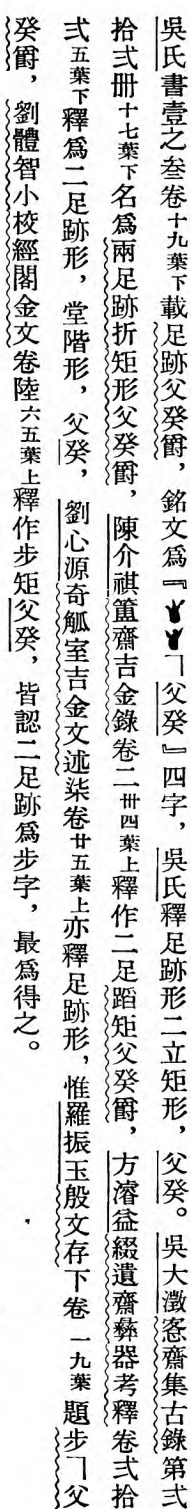 吳氏書壹之叁卷十九葉下載足跡父癸爵，銘文為『𠃍父癸』四字，吳氏釋足跡形二立矩形，父癸。吳大澂愙齋集古錄第弍
拾弍册十七葉下名爲兩足跡折矩形父癸爵，陳介祺簠齋吉金錄卷二卌四葉上釋作二足蹈矩父癸爵，方濬益綴遺齋彝器考釋卷弍拾
弍五葉下釋爲二足跡形，堂階形，父癸，劉心源奇觚室吉金文述柒卷廿五葉上亦釋足跡形，惟羅振玉殷文存下卷一九葉題步𠃍父
癸爵，劉體智小校經閣金文卷陸六五葉上釋作步矩父癸，皆認二足跡爲步字，最爲得之。